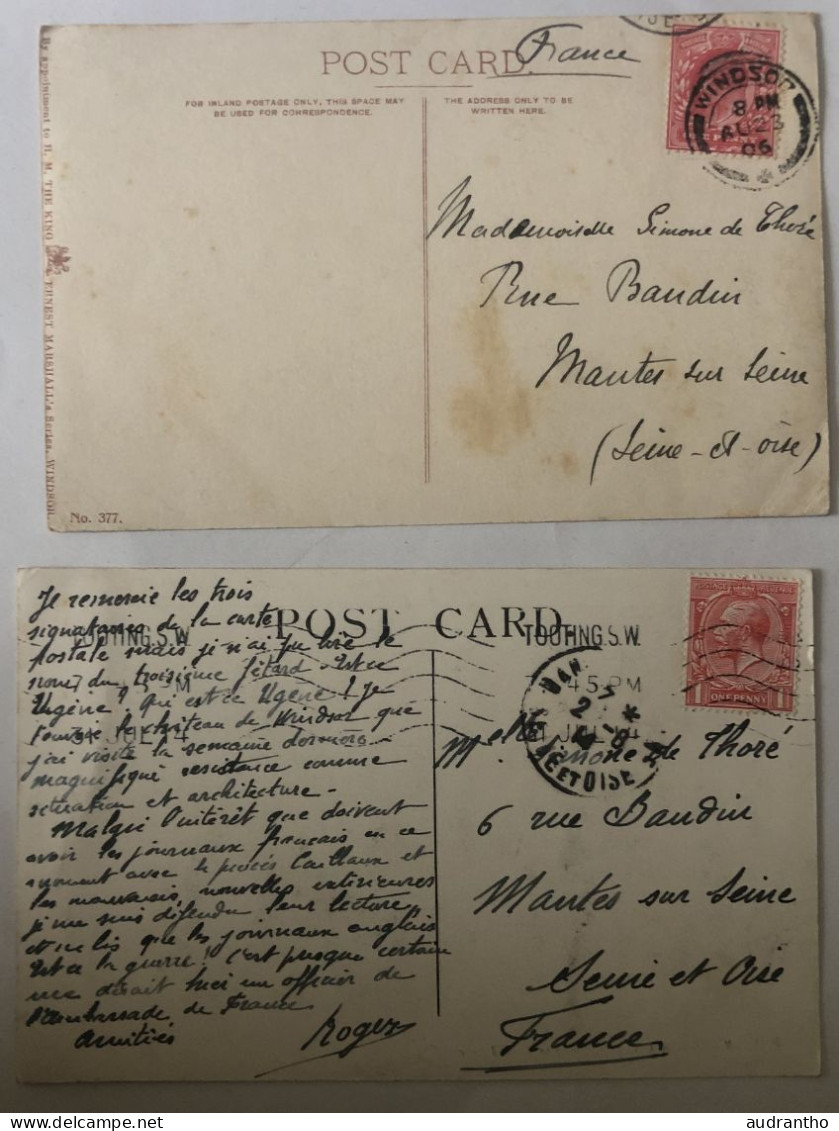 POST CARD
France
FOR INLAND POSTAGE ONLY, THIS SPACE MAY
BE USED FOR CORRESPONDENCE.
THE ADDRESS ONLY TO BE
WRITTEN HERE.
WINDSOR
8 PM
AU 23
06
Mademoiselle Simone de Thoré
Rue Baudin
Mantes sur Seine
(Seine-et-Oise)
By appointment to H. M. THE KING
ERNEST MARSHALL's Series, WINDSOR
No. 377.
POST CARD
TOOTING.S.W.
TOOTING.S.W.
45 PM
31 JUL 14
ONE PENNY
Je remercie les trois
signataires de la carte
postale mais je n'ai pu lire le
nom du troisième fêtard - Est-ce
Ugène? Qui est ce Ugène! Je
t'envoie le château de Windsor que
j'ai visité la semaine dernière
magnifique résidence comme
situation et architecture -
Malgré l'intérêt que doivent
avoir les journaux français en ce
moment avec le procès Caillaux et
les mauvaises nouvelles extérieures
je me suis défendu leur lecture
et ne lis que les journaux anglais
Est ce la guerre! C'est presque certain
me disait hier un officier de
l'ambassade de France
Amitiés
Roger
Melle Simone de Thoré
6 rue Baudin
Mantes sur Seine
Seine et Oise
France
audrantho